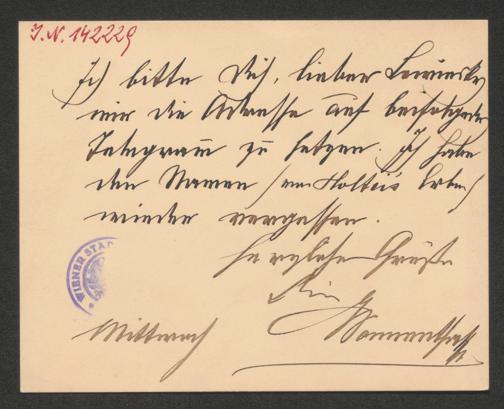 J.N. 142229
Ich bitte Dich, lieber Lewinsky
mir die Adresse auf beifolgendes
Telegramm zu setzen. Ich habe
den Namen (von Holtei's Erben)
wieder vergessen.
herzliche Grüße
Dein
Sonnenthal
Mittwoch
WIENER STAD